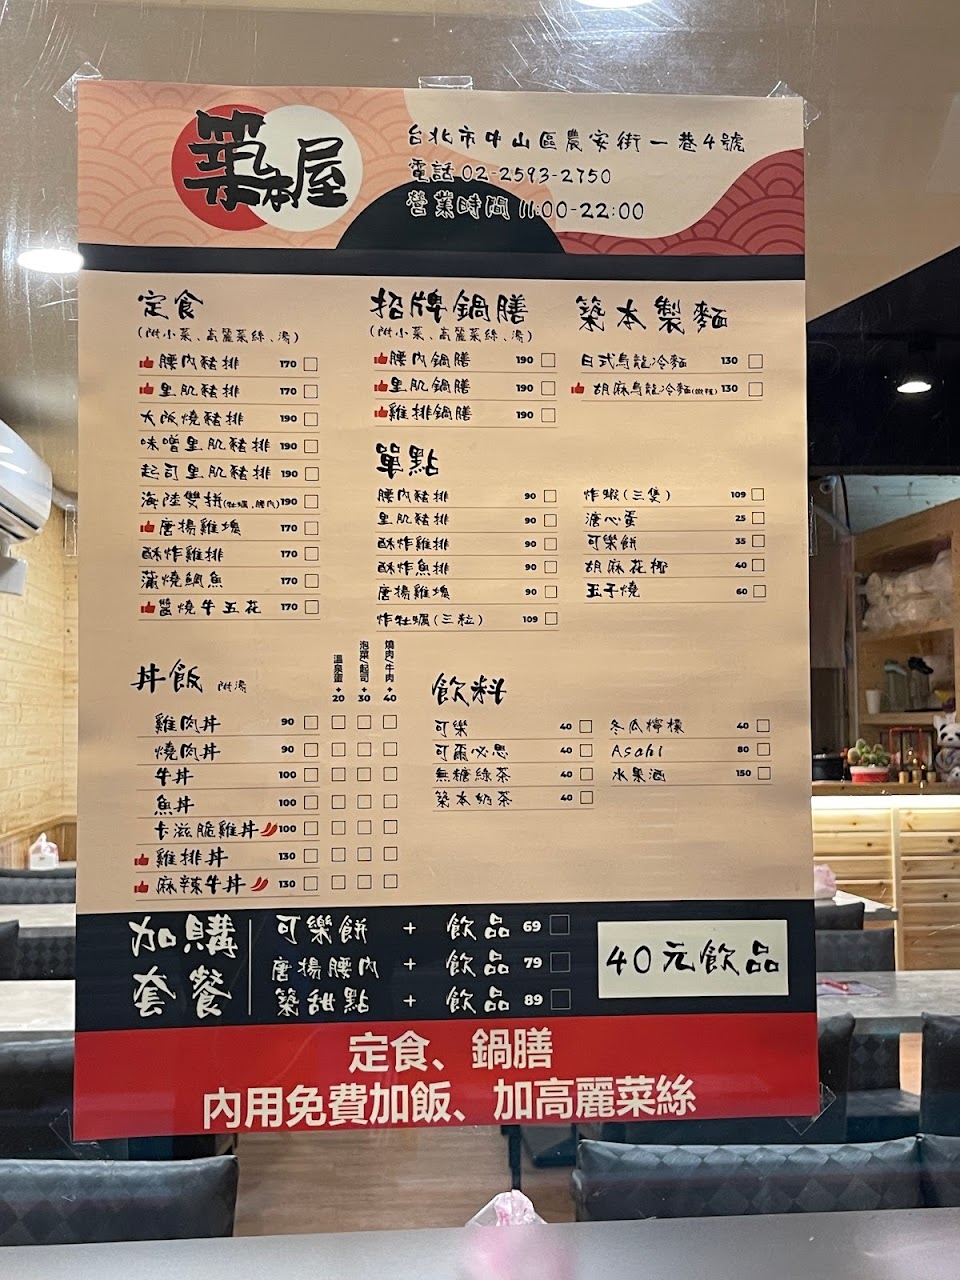 築本屋
台北市中山區農安街一巷4號
電話 02-2593-2750
營業時間 11:00-22:00
定食
(附小菜、高麗菜絲、湯)
腰內豬排 170
里肌豬排 170
大阪燒豬排 190
味噌里肌豬排 190
起司里肌豬排 190
海陸雙拼(牡蠣、腰內) 190
唐揚雞塊 170
酥炸雞排 170
蒲燒鯛魚 170
醬燒牛五花 170
招牌鍋膳
(附小菜、高麗菜絲、湯)
腰內鍋膳 190
里肌鍋膳 190
雞排鍋膳 190
築本製麵
日式烏龍冷麵 130
胡麻烏龍冷麵(微辣) 130
單點
腰內豬排 90
里肌豬排 90
酥炸雞排 90
酥炸魚排 90
唐揚雞塊 90
炸牡蠣(三粒) 109
炸蝦(三隻) 109
溏心蛋 25
可樂餅 35
胡麻花椰 40
玉子燒 60
丼飯 附湯
溫泉蛋+20
泡菜/起司+30
燒肉/牛肉+40
雞肉丼 90
燒肉丼 90
牛丼 100
魚丼 100
卡滋脆雞丼 100
雞排丼 130
麻辣牛丼 130
飲料
可樂 40
可爾必思 40
無糖綠茶 40
築本奶茶 40
冬瓜檸檬 40
Asahi 80
水果酒 150
加購
套餐
可樂餅 + 飲品 69
唐揚腰內 + 飲品 79
築甜點 + 飲品 89
40元飲品
定食、鍋膳
內用免費加飯、加高麗菜絲